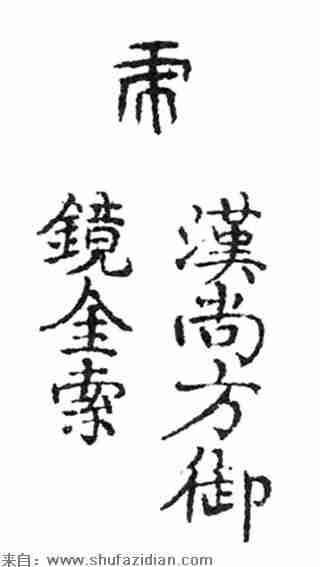 漢尚方御
鏡金索
来自：www.shufazidian.com